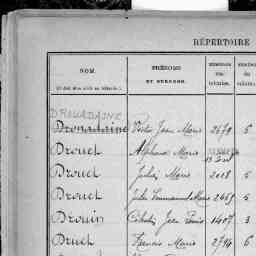 RÉPERTOIRE
NOM. PRÉNOMS ET SURNOMS.
DROUADAINE
Drouadaine Victor Jean Marie 2679 5
Drouet Alphonse Marie
Drouet Julien Marie 2028 5
Drouet Jules Emmanuel Marie 2465 5
Drouin Jean Louis 1407 3
Druet Francis Marie 2794 6